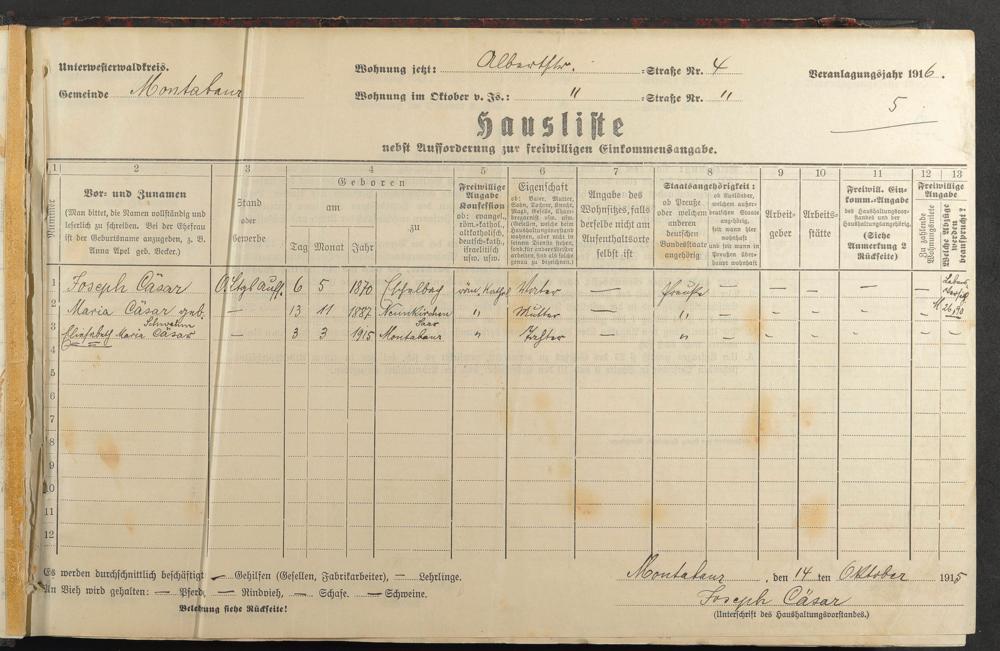 Unterwesterwaldkreis.
Gemeinde Montabaur
Wohnung jetzt: Albertstr. -Straße Nr. 4
Wohnung im Oktober v. Js.: " -Straße Nr. "
Veranlagungsjahr 1916.
5
Hausliste
nebst Aufforderung zur freiwilligen Einkommensangabe.
1 2 3 4 5 6 7 8 9 10 11 12 13
Nummer
Vor- und Zunamen
(Man bittet, die Namen vollständig und
leserlich zu schreiben. Bei der Ehefrau
ist der Geburtsname anzugeben, z. B.
Anna Apel geb. Becker.)
Stand
oder
Gewerbe
Geboren
am
zu
Tag Monat Jahr
Freiwillige
Angabe
Konfession
ob: evangel.,
röm.-kathol.,
altkatholisch,
deutsch-kath.,
israelitisch
usw. usw.
Eigenschaft
ob: Vater, Mutter,
Sohn, Tochter, Knecht,
Magd, Geselle, Cham-
bregarnist usw.
Angabe des
Wohnsitzes, falls
derselbe nicht am
Aufenthaltsorte
selbst ist
Staatsangehörigkeit:
ob Preuße
oder welchem
anderen
deutschen
Bundesstaate
angehörig
ob Ausländer,
welchem außer-
deutschen Staate
angehörig,
seit wann hier
wohnhaft
und seit wann in
Preußen über-
haupt wohnhaft
Arbeit-
geber
Arbeits-
stätte
Freiwill. Ein-
komm.-Angabe
des Haushaltungsvor-
standes und der
Haushaltungsangehörig.
(Siehe
Anmerkung 2
Rückseite)
Freiwillige
Angabe
Zu zahlende
Wohnungsmiete
Welche Abzüge
werden
beansprucht?
1 Joseph Cäsar 6 5 1870 Eschelbach röm. kathol. Vater — Preuße — — — — —
2 Maria Cäsar geb. — 13 11 1887 Neunkirchen " Mutter — " — — — — — M 26,90
Schwehm Saar
3 Elisabeth Maria Cäsar — 3 3 1915 Montabaur " Tochter — " — — — — — —
4
5
6
7
8
9
10
11
12
Es werden durchschnittlich beschäftigt — Gehilfen (Gesellen, Fabrikarbeiter), — Lehrlinge.
An Vieh wird gehalten: — Pferd, — Rindvieh, — Schafe. — Schweine.
Belehrung siehe Rückseite!
Montabaur, den 14 ten Oktober 1915
Joseph Cäsar
(Unterschrift des Haushaltungsvorstandes.)